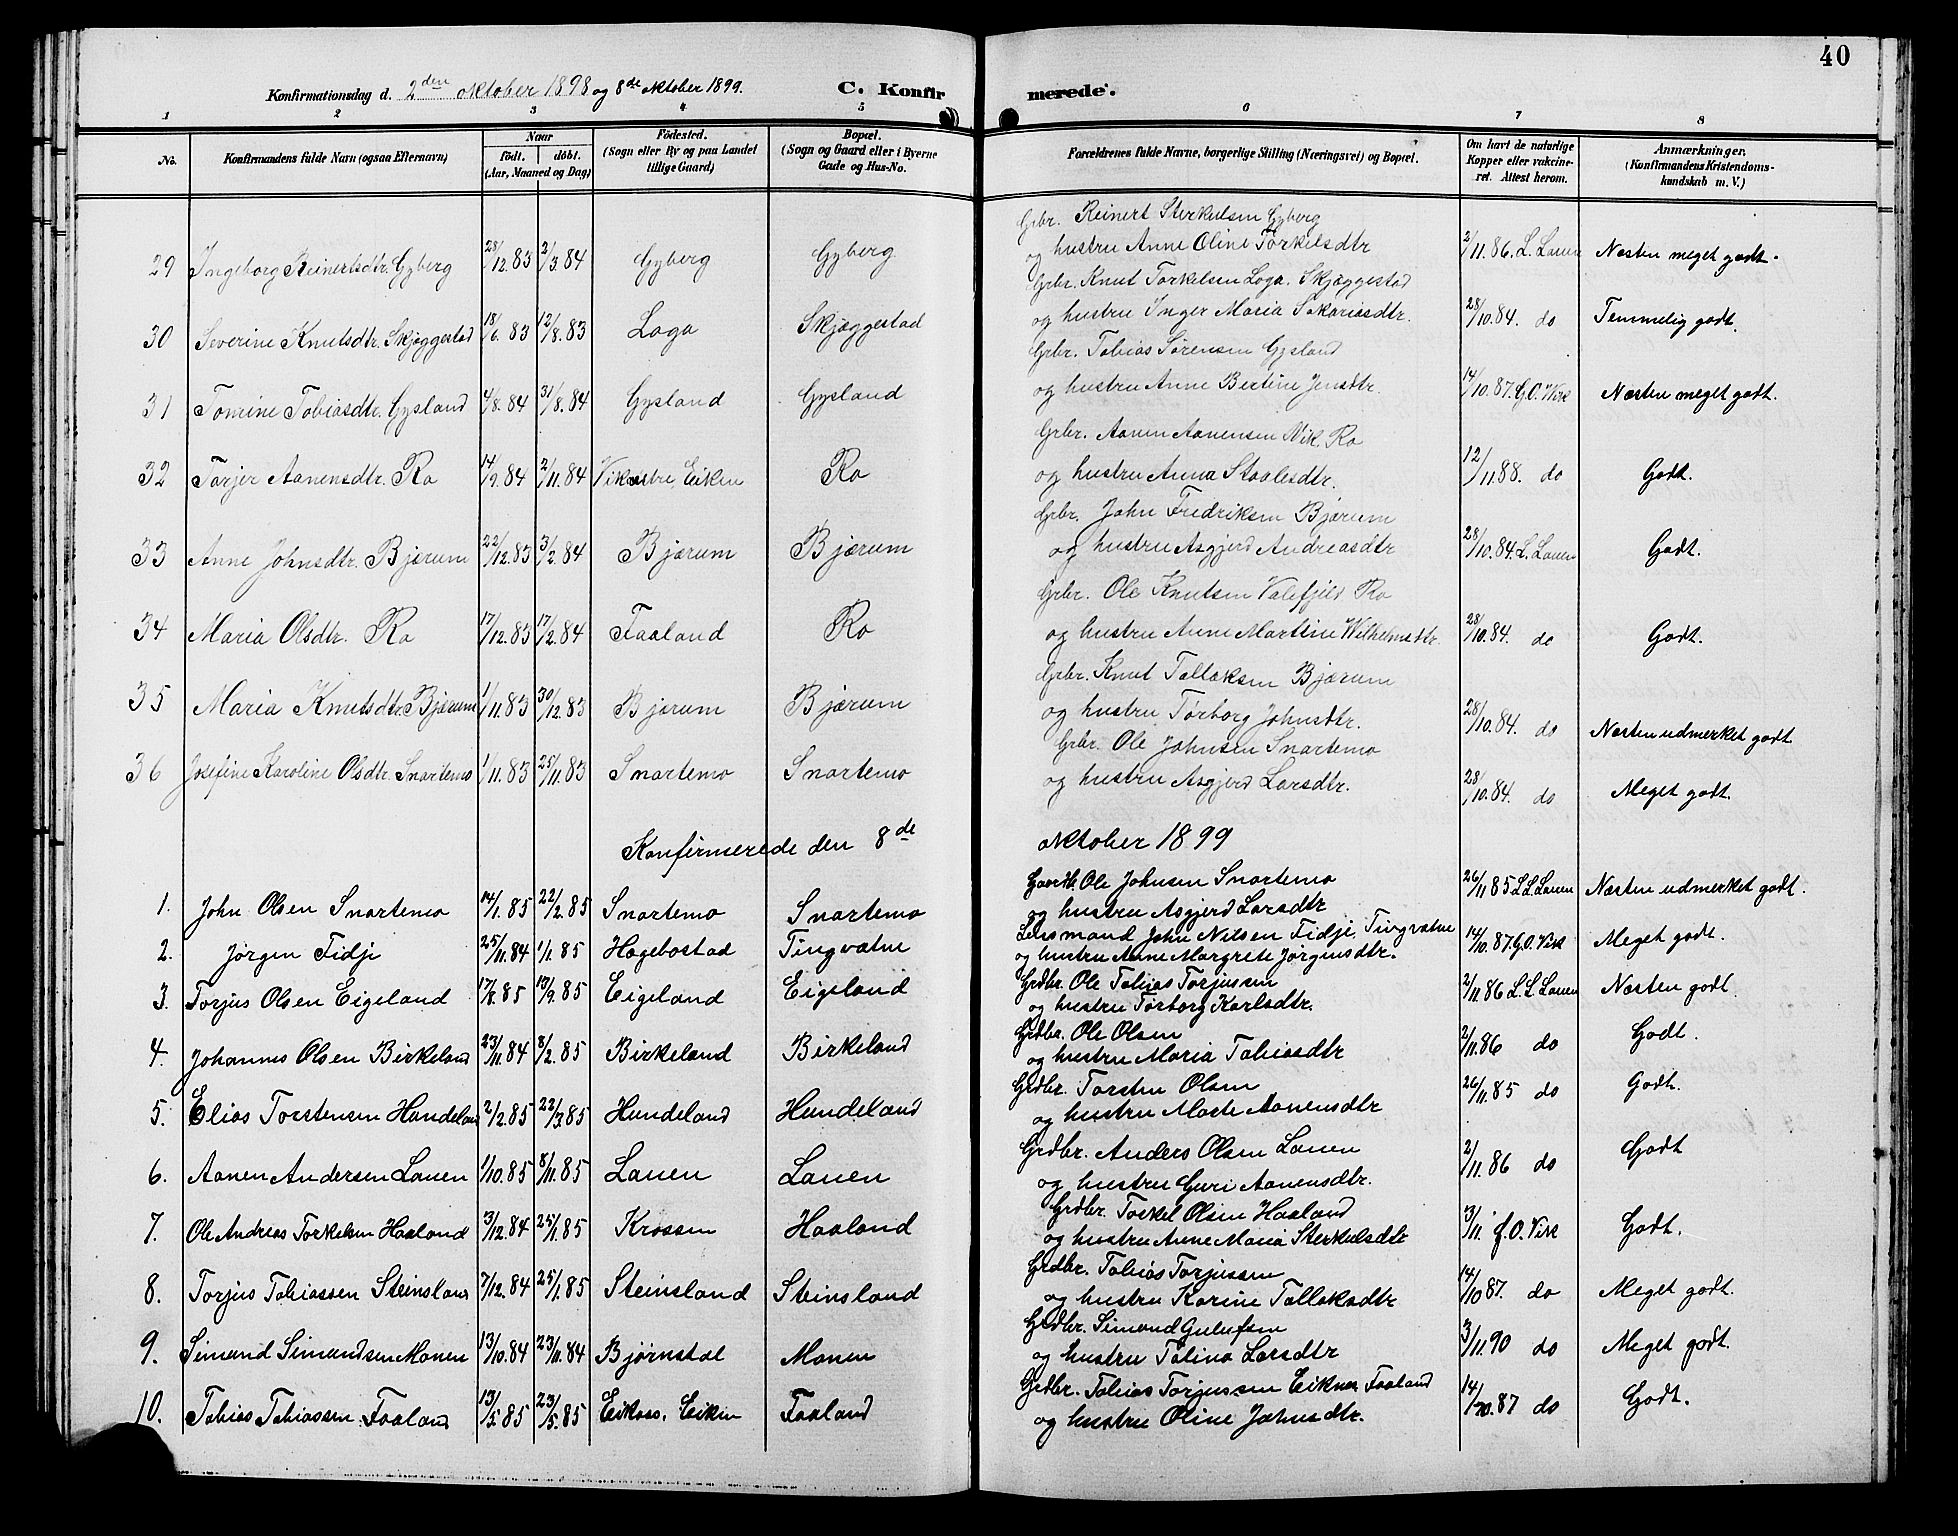 40
Konfirmationsdag d. 2den oktober 1898 og 8de oktober 1899. C. Konfirmerede.
1 2 3 4 5 6 7 8
No. Konfirmandens fulde Navn (ogsaa Efternavn) Naar født. døbt. (Aar, Maaned og Dag) Fødested. (Sogn eller By og paa Landet tillige Gaard) Bopæl. (Sogn og Gaard eller i Byerne Gade og Hus-No. Forældrenes fulde Navne, borgerlige Stilling (Næringsvei) og Bopæl. Om havt de naturlige Kopper eller vakcineret. Attest herom. Anmærkninger. (Konfirmandens Kristendomskundskab m. V.)
Grbr. Reinert Sterkelsen Gyberg
29 Ingeborg Reinertsdtr. Gyberg 28/12.83 2/3.84 Gyberg Gyberg og hustru Anne Oline Torkelsdtr 2/11.86. L. Lauen Næsten meget godt.
Grbr. Knut Torkelsen Loga. Skjæggestad
30 Severine Knutsdtr. Skjæggestad 18/6.83 12/8.83 Loga Skjæggestad og hustru Inger Maria Sakariasdtr. 28/10.84. do Temmelig godt.
Grbr. Tobias Sørensen Gysland
31 Tomine Tobiasdtr. Gysland 4/8.84 31/8.84 Gysland Gysland og hustru Anne Bertine Jensdtr 14/10.87. G.O. Virk Næsten meget godt.
Grbr. Aanen Aanensen Vik. Ro
32 Torjer Aanensdtr. Ro 14/9.84 2/11.84 Vikøstre, Eiken Ro og hustru Anna Staalesdtr. 12/11.88. do Godt.
Grbr. John Fredriksen Bjærum
33 Anne Johnsdtr. Bjærum 22/12.83 3/2.84 Bjærum Bjærum og hustru Asgjerd Andreasdtr 28/10.84. L. Lauen Godt.
Grbr. Ole Knutsen Valefjeld Ro
34 Maria Olsdtr. Ro 17/12.83 17/2.84 Faaland Ro og hustru Anne Martine Wilhelmsdtr. 28/10.84. do Godt.
Grbr. Knut Tallaksen Bjærum
35 Maria Knutsdtr. Bjærum 1/11.83 30/12.83 Bjærum Bjærum og hustru Tørborg Johnsdtr. 28/10.84. do Næsten udmerket godt
Grbr. Ole Johnsen Snartemo
36 Josefine Karoline Olsdtr. Snartemo 1/11.83 25/11.83 Snartemo Snartemo og hustru Asgjerd Larsdtr. 28/10.84. do Meget godt.
Konfirmerede den 8de oktober 1899
Gaardb. Ole Johnsen Snartemo
1. John Olsen Snartemo 14/1.85 22/2.85 Snartemo Snartemo og hustru Asgjerd Larsdtr 26/11 85 L.L. Lauen Næsten udmerket godt.
Lensmand John Nilsen Fidje, Tingvatne
2. Jørgen Fidje 25/11.84 1/1.85 Hægebostad Tingvatne og hustru Anne Margrete Jørgensdtr. 14/10.87. G.O. Virk Meget godt.
Grdbr. Ole Tobias Torjussen
3. Torjus Olsen Eigeland 17/8.85 13/9.85 Eigeland Eigeland og hustru Tørborg Karlsdtr. 2/11.86 L.L. Lauen Næsten godt
Grdbr. Ole Olsen
4. Johannes Olsen Birkeland 23/11.84 8/2.85 Birkeland Birkeland og hustru Maria Tobiasdtr 2/11.86 do Godt.
Grdbr. Torsten Olsen
5. Elias Torstensen Hundeland 2/2.85 22/3.85 Hundeland Hundeland og hustru Marte Aanensdtr 26/11.85 do Godt.
Grdbr. Anders Olsen Lauen
6. Aanen Andersen Lauen 1/10.85 8/11.85 Lauen Lauen og hustru Guri Aanensdtr. 2/11.86 do Godt
Grdbr. Torkel Olsen Haaland
7. Ole Andreas Torkelsen Haaland 3/12.84 25/1.85 Krossen Haaland og hustru Anne Maria Sterkelsdtr 3/11. G.O. Virk Godt.
Grdbr. Tobias Torjussen
8. Torjus Tobiassen Steinsland 7/12.84 25/1.85 Steinsland Steinsland og hustru Karine Tallaksdtr 14/10 87. do Meget godt.
Grdbr. Simond Gulufsen
9. Simund Simundsen Monen 13/10.84 23/11.84 Bjørnstøl Monen og hustru Talina Larsdtr 3/11.90 do Meget godt.
Grdbr. Tobias Torjussen Eiknes Faaland
10. Tobias Tobiassen Faaland 13/5.85 23/5.85 Eikaas, Eiken Faaland og hustru Oline Johnsdtr. 14/10.87 do Godt.